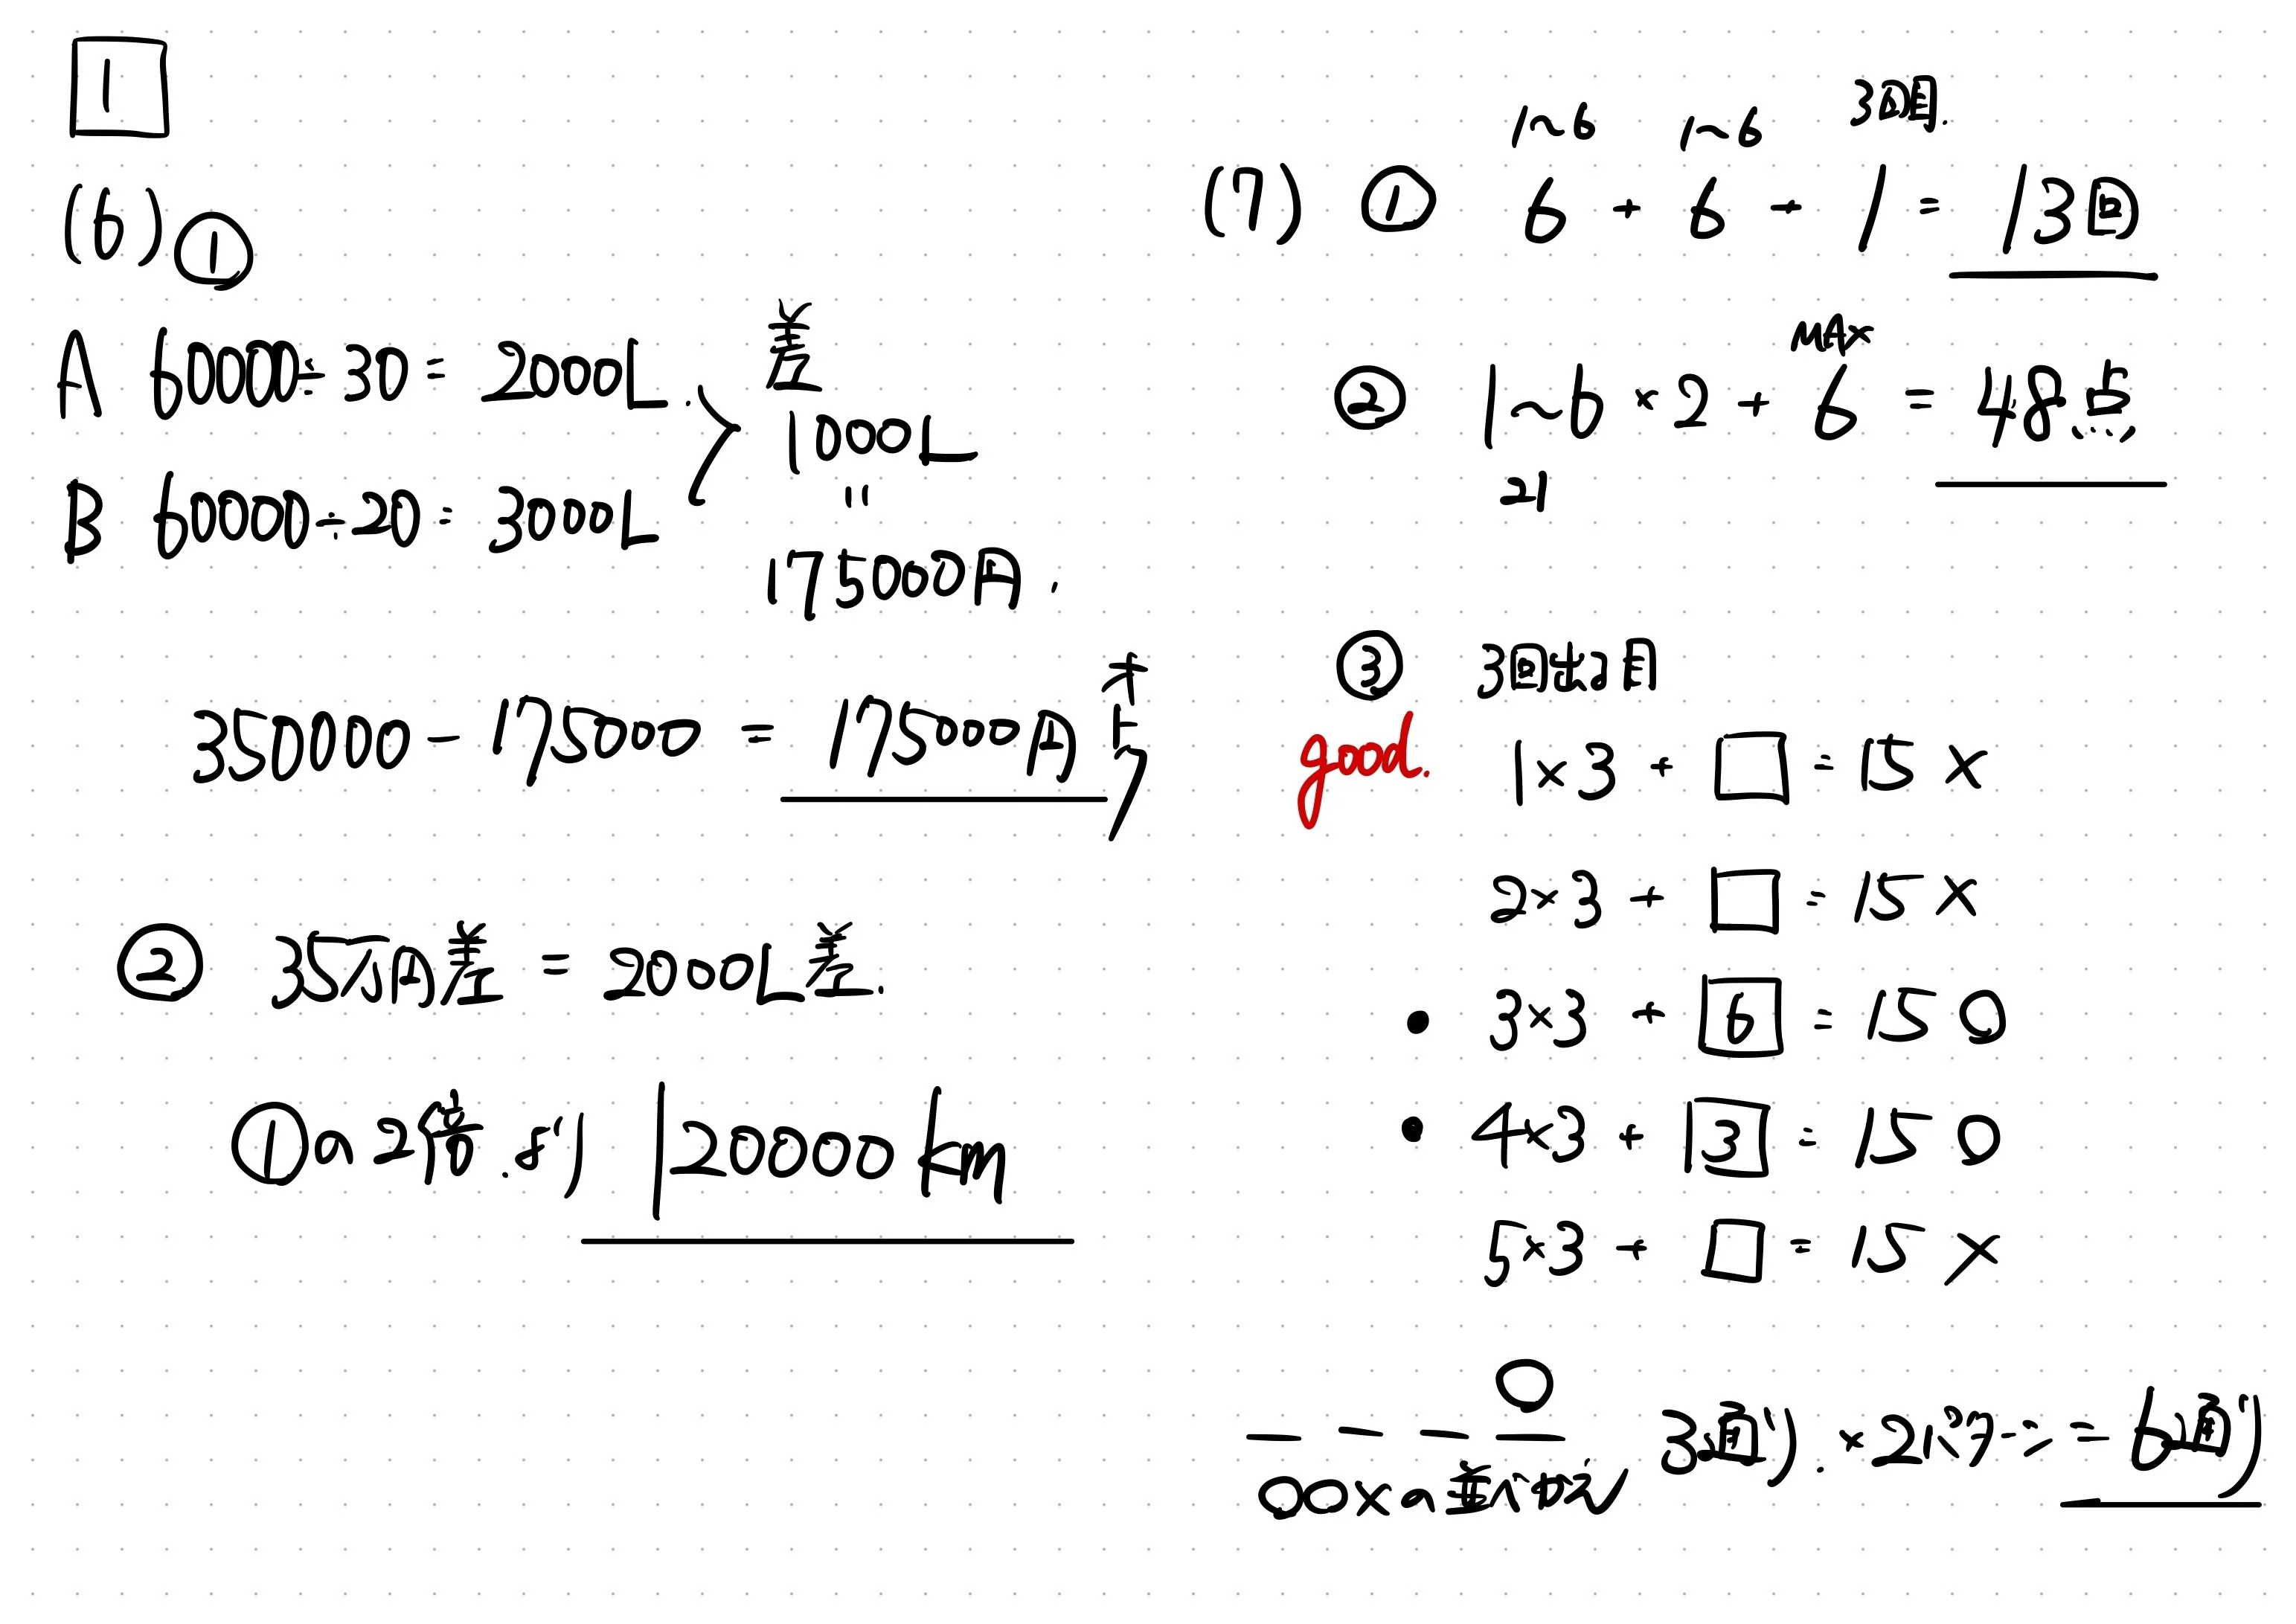 1
(6) ①
A 60000÷30 = 2000L.
差
1000L
"
175000円.
B 60000÷20 = 3000L
350000 - 175000 = 175000円 オトク
② 35万円差 = 2000L差.
①の2倍.より 120000km
(7) ① 1~6 1~6 3回目.
6 + 6 + 1 = 13回
MAX
② 1~6 × 2 + 6 = 48点
21
③ 3回出る目
good.
1×3 + □ = 15 ×
2×3 + □ = 15 ×
• 3×3 + 6 = 15 ○
• 4×3 + 3 = 15 ○
5×3 + □ = 15 ×
○
○○×の並べかえ 3通り. ×2パターン = 6通り